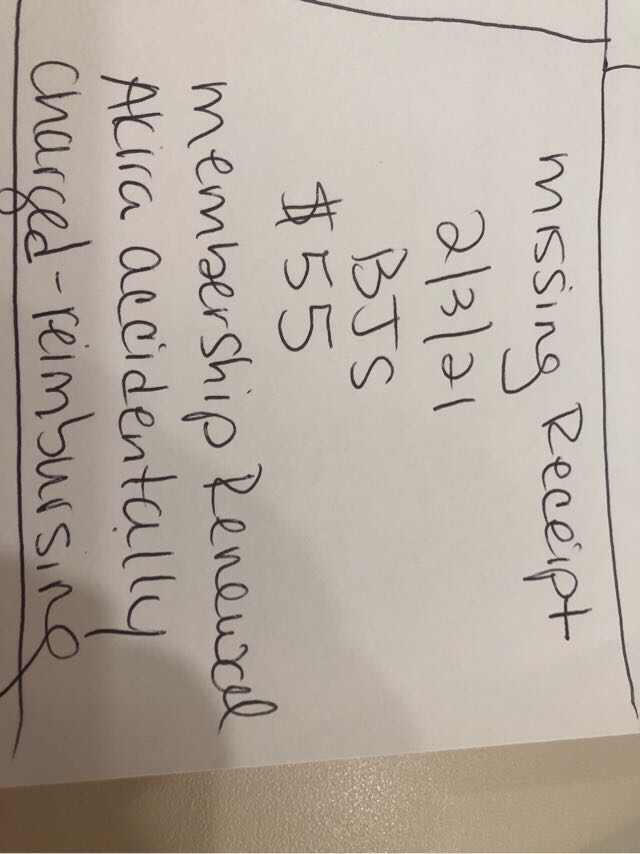 missing Receipt
2/3/21
BJS
$55
membership Renewal
Akira accidentally
charged-reimbursing